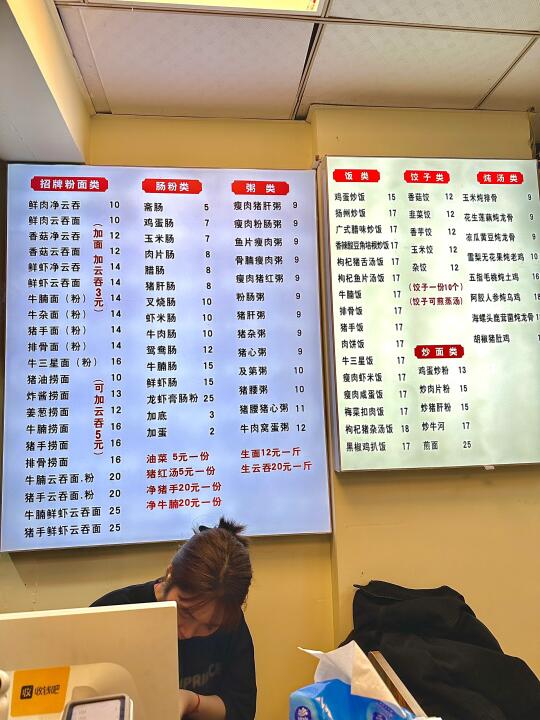 招牌粉面类
鲜肉净云吞 10
鲜肉云吞面 10
香菇净云吞 12
香菇云吞面 12
鲜虾净云吞 14
鲜虾云吞面 14
牛腩面（粉） 14
牛杂面（粉） 14
猪手面（粉） 14
排骨面（粉） 14
牛三星面（粉） 16
猪油捞面 10
炸酱捞面 13
姜葱捞面 12
牛腩捞面 16
猪手捞面 16
排骨捞面 16
牛腩云吞面.粉 20
猪手云吞面.粉 20
牛腩鲜虾云吞面 25
猪手鲜虾云吞面 25
（加面 加云吞3元）
（可加云吞5元）
肠粉类
斋肠 5
鸡蛋肠 7
玉米肠 7
肉片肠 8
腊肠 8
猪肝肠 8
叉烧肠 10
虾米肠 10
牛肉肠 10
鸳鸯肠 12
牛腩肠 15
鲜虾肠 15
龙虾膏肠粉 25
加底 3
加蛋 2
油菜 5元一份
猪红汤5元一份
净猪手20元一份
净牛腩20元一份
粥类
瘦肉猪肝粥 9
瘦肉粉肠粥 9
鱼片瘦肉粥 9
骨腩瘦肉粥 9
瘦肉猪红粥 9
粉肠粥 9
猪肝粥 9
猪杂粥 9
猪心粥 9
及第粥 10
猪腰粥 10
猪腰猪心粥 11
牛肉窝蛋粥 12
生面12元一斤
生云吞20元一斤
饭类
鸡蛋炒饭 15
扬州炒饭 17
广式腊味炒饭 17
香辣酸豆角培根炒饭 17
枸杞猪舌汤饭 17
枸杞鱼片汤饭 17
牛腩饭 17
排骨饭 17
猪手饭 17
肉饼饭 17
牛三星饭 17
瘦肉虾米饭 17
瘦肉咸蛋饭 17
梅菜扣肉饭 17
枸杞猪杂汤饭 18
黑椒鸡扒饭 17
饺子类
香菇饺 12
韭菜饺 12
香芋饺 12
玉米饺 12
杂饺 12
（饺子一份10个）
（饺子可煎蒸汤）
炒面类
鸡蛋炒粉 13
炒肉片粉 15
炒猪肝粉 15
炒牛河 17
煎面 25
炖汤类
玉米炖排骨 9
花生莲藕炖龙骨 9
凉瓜黄豆炖龙骨 9
雪梨无花果炖老鸡 10
五指毛桃炖土鸡 11
阿胶人参炖乌鸡 11
海螺头鹿茸菌炖龙骨 9
胡椒猪肚鸡 11
收 收钱吧